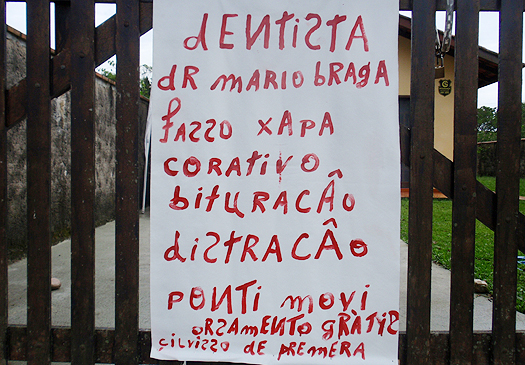 dENtiStA
dR MARiO bRAGA
fASSO XAPA
CORAtivO
bituRACÂO
diStRACÂO
PONti MOvi
ORSAMENtO gRÀtiS
ÇiLviSSO dE PREMERA